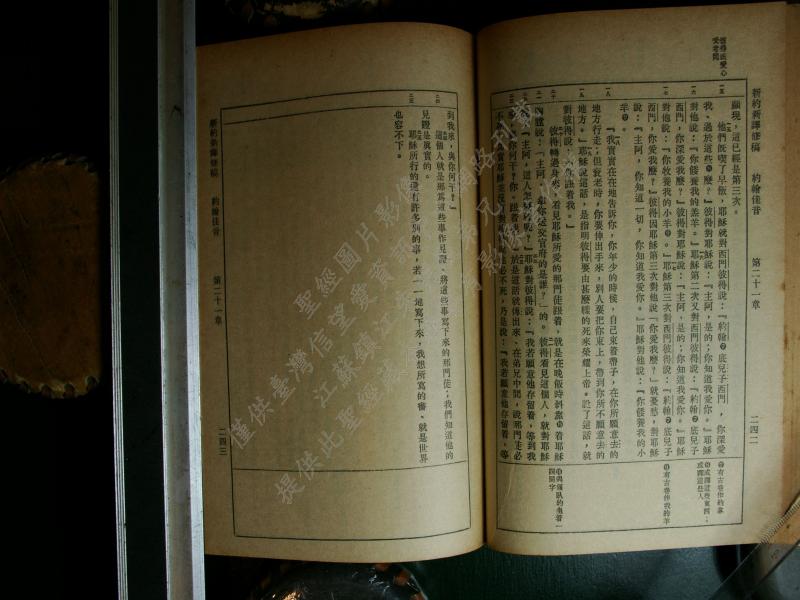 新約新譯修稿　約翰佳音　第二十一章　二四二
顯現，這已經是第三次。
他們旣喫了早飯，耶穌就對西門彼得說：『約翰底兒子西門，你深愛
我、過於這些麼？』彼得對耶穌說：『主阿，是的；你知道我愛你。』耶穌
對他說：『你餧養我的羔羊。』耶穌第二次又對西門彼得說：『約翰底兒子
西門，你深愛我麼？』彼得對耶穌說：『主阿，是的；你知道我愛你。』耶穌
對他說：『你牧養我的小羊。』耶穌第三次對西門彼得說：『約翰底兒子
西門，你愛我麼？』彼得因耶穌第三次對他說『你愛我麼？』就憂愁，對耶穌
說：『主阿，你知道一切，你知道我愛你。』耶穌對他說：『你餧養我的小
羊。
『我實實在在地告訴你，你年少的時候，自己束着帶子，在你所願意去的
地方行走；但衰老時，你要伸出手來，別人要把你束上，帶到你所不願意去的
地方。』耶穌說這話，是指明彼得要由甚麼樣的死來榮耀上帝。說了這話，就
對彼得說：『你跟着我。』
彼得轉過身來，看見耶穌所愛的那門徒跟着，就是在晚飯時斜靠着耶穌
說：『主阿，
交官府的是誰？』的。彼得看見這個人，就對耶穌
說：『主阿，這人怎
耶穌對彼得說：『我若願意他存留着，等到我
你跟着
於是這話就傳出來、在弟兄中間，說那門徒必
不死，乃是說：『我若願意他存留着，等
有古卷作約拿
或譯這些東西；
或譯這些人
有古卷作我的羊
到我來，與你何干？』
這個人就是那爲這些事作見證、將這些事寫下來的那門徒；我們知道他的
見證是眞實的。
耶穌所行的還有許多別的事，若一一地寫下來，我想所寫的書、就是世界
也容不下。
新約新譯修稿　約翰佳音　第二十一章　二四三
僅供臺灣信望愛資
聖經圖片影像
網路刊載
提供此聖經